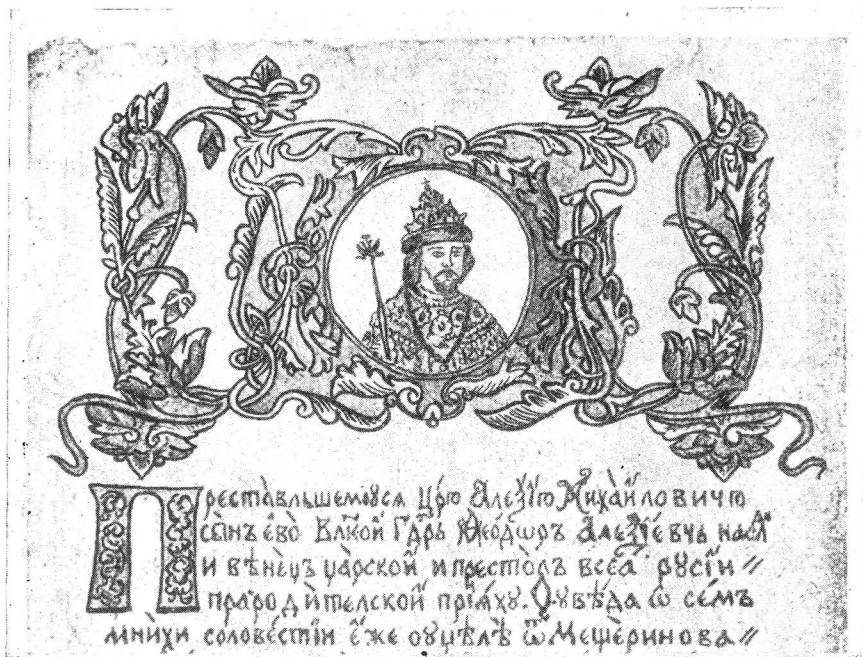 Преставльшемѹсѧ Црю Алеѯїю Михаиловичю
сынъ ево Влкой Гдрь Ѳеодѡръ Алеѯїевчь наслⷣ
и вѣнецъ царской и престолъ всеа рѹсїи //
прародителской прїѧху. Оувѣда ѡ семъ
мнихи соловестїи еже оуцѣлѣ ѿ Мещеринова //